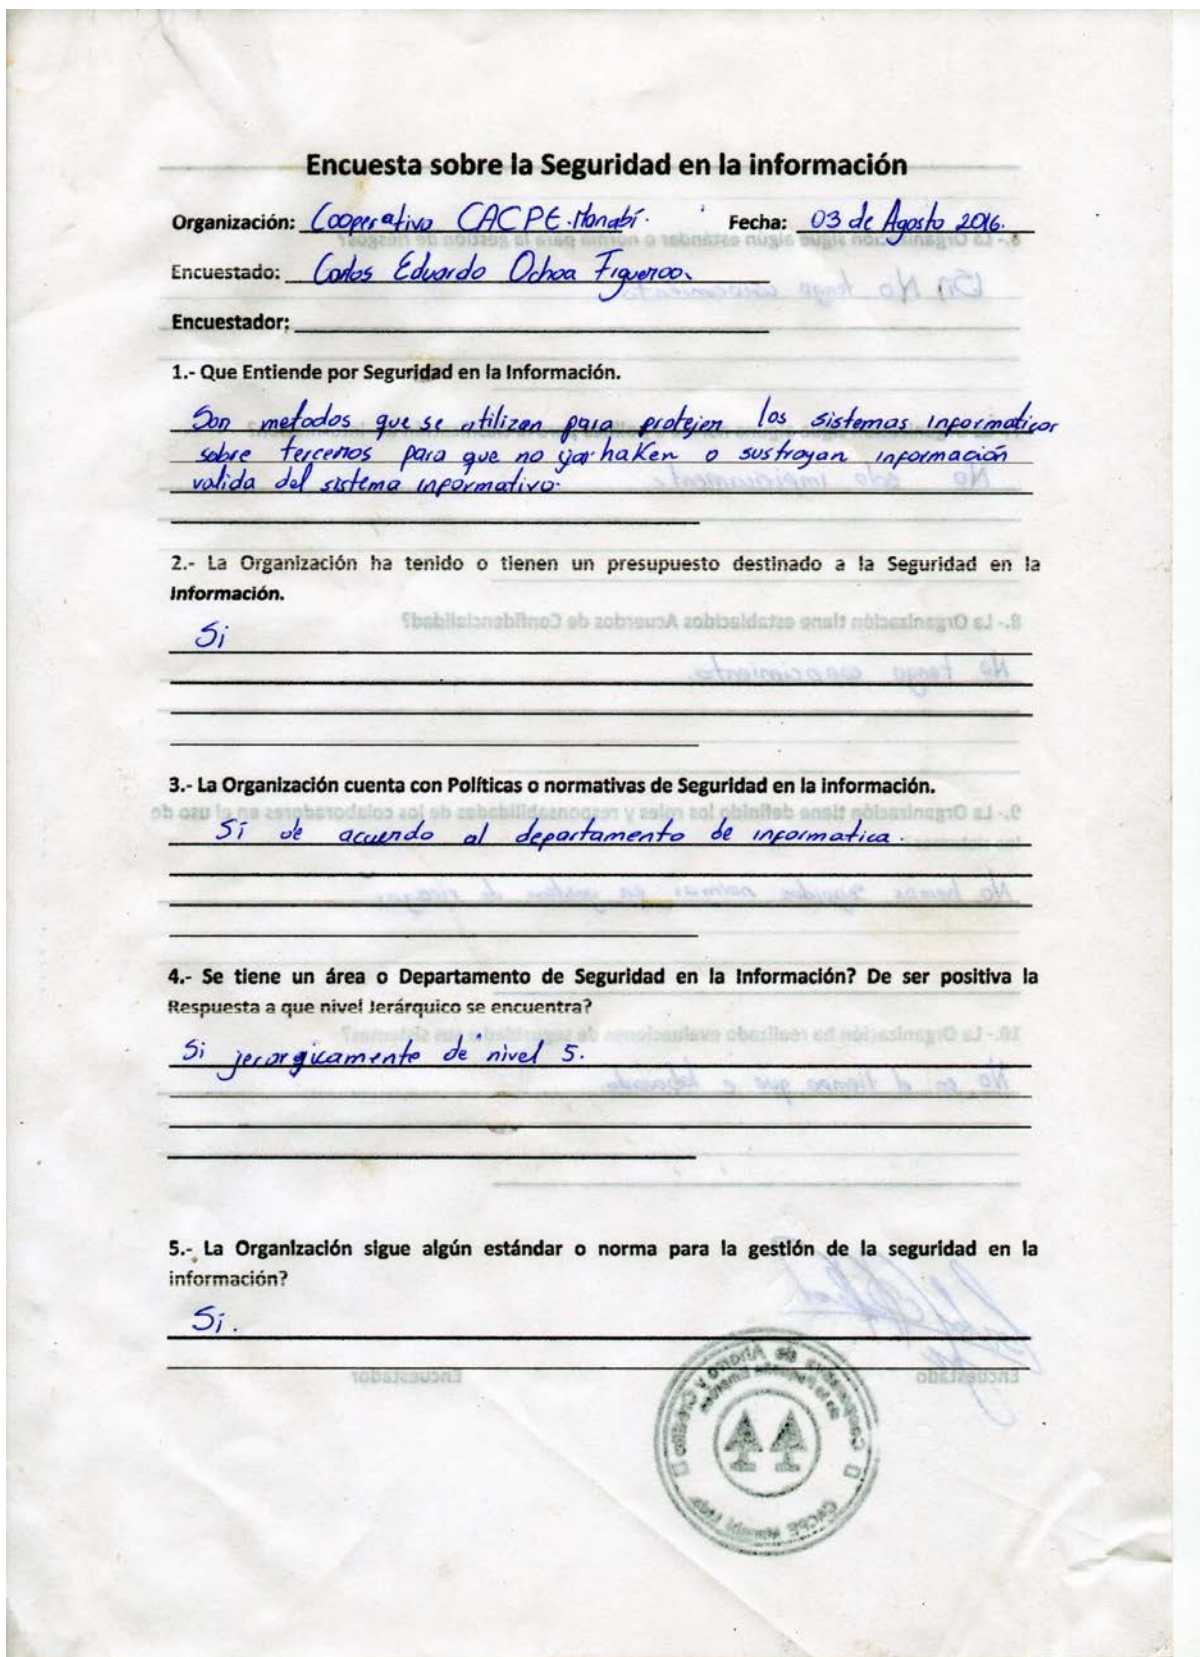 Encuesta sobre la Seguridad en la información
Organización: Cooperativa CACPE-Manabí. Fecha: 03 de Agosto 2016.
Encuestado: Carlos Eduardo Ochoa Figueroa.
Encuestador:
1.- Que Entiende por Seguridad en la Información.
Son metodos que se utilizan para protejen los sistemas informaticos
sobre terceros para que no haken o sustrayan información
valida del sistema informativo.
2.- La Organización ha tenido o tienen un presupuesto destinado a la Seguridad en la
Información.
Si
3.- La Organización cuenta con Políticas o normativas de Seguridad en la información.
Sí de acuerdo al departamento de informatica.
4.- Se tiene un área o Departamento de Seguridad en la Información? De ser positiva la
Respuesta a que nivel Jerárquico se encuentra?
Si jerargicamente de nivel 5.
5.- La Organización sigue algún estándar o norma para la gestión de la seguridad en la
información?
Si.